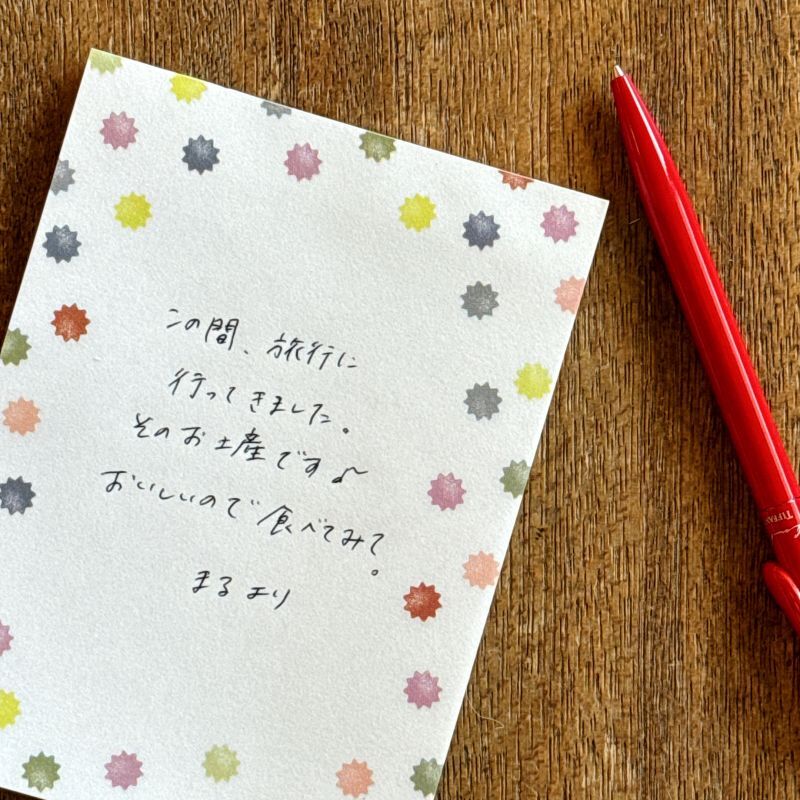 この間、旅行に
行ってきました。
そのお土産です♪
おいしいので食べてみて。
まるより
TIFFA